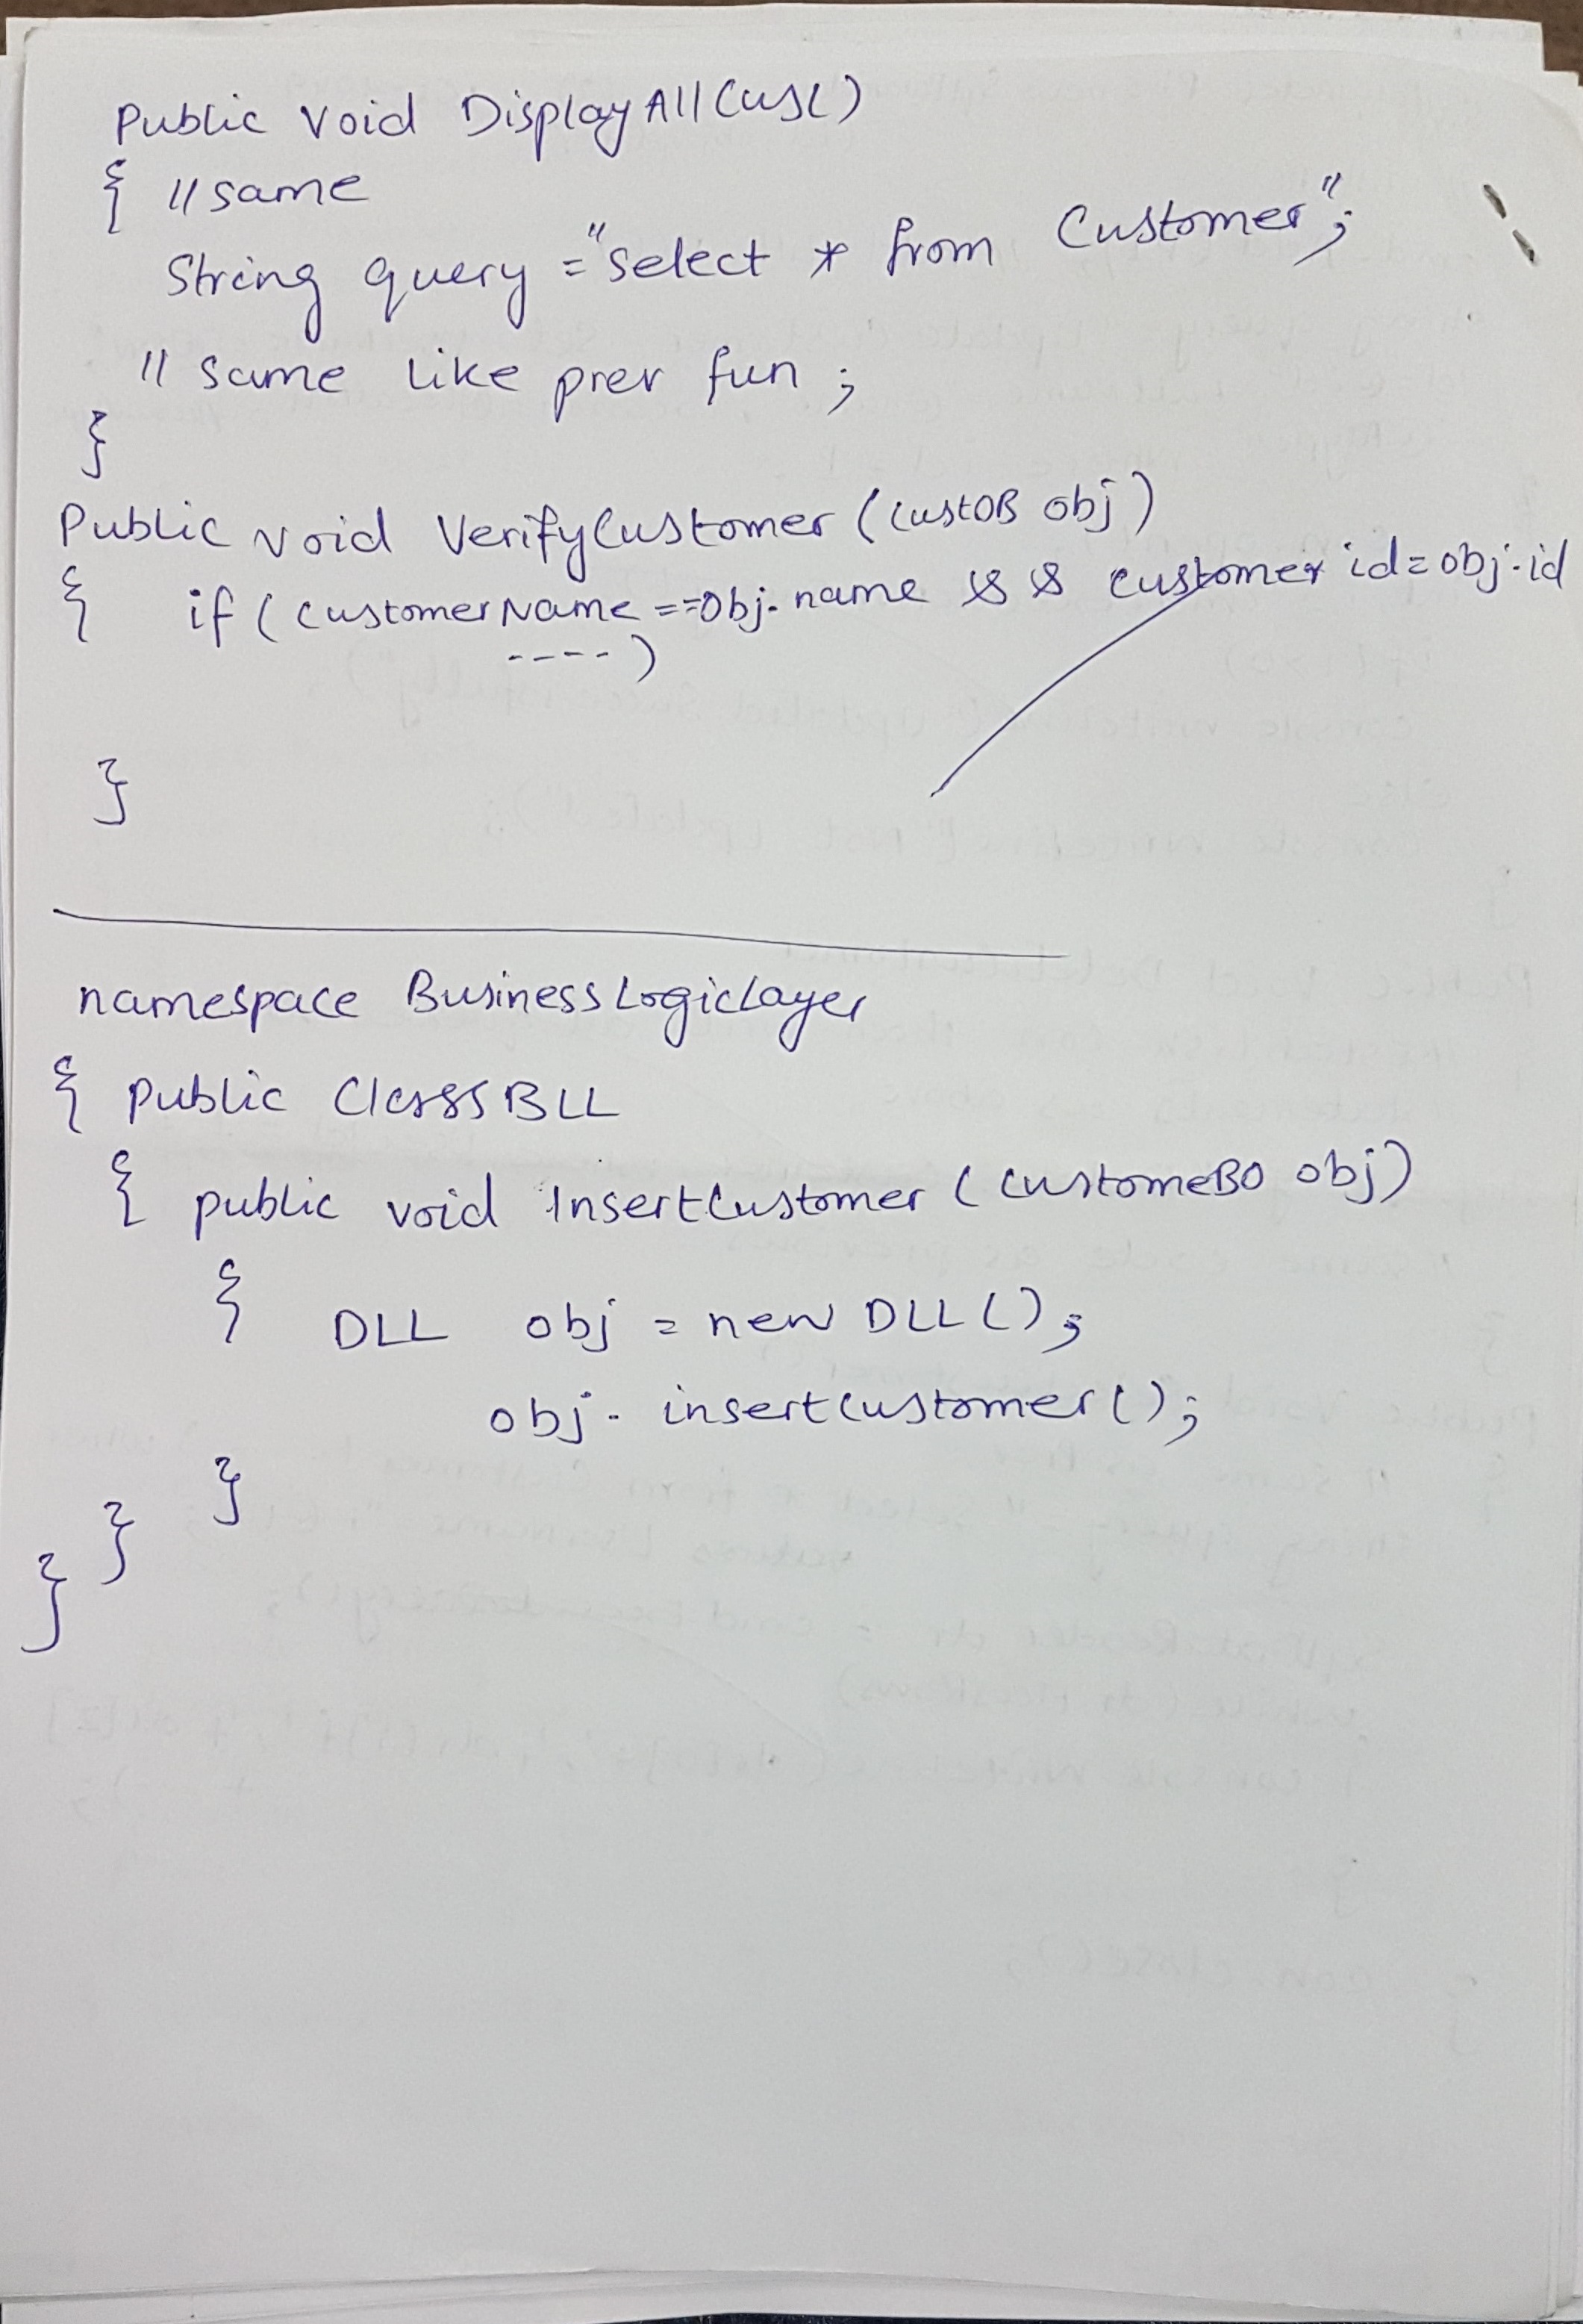 Public void DisplayAllCus()
{ //same
String query ="select * from Customer";
// same like prev fun ;
}
Public void VerifyCustomer (custOB obj)
{ if ( customerName ==obj.name && customer id=obj.id
----)
}
namespace BusinessLogicLayer
{ public Class BLL
{ public void InsertCustomer ( customeBO obj)
{ DLL obj = new DLL();
obj. insertcustomer();
}
}
}